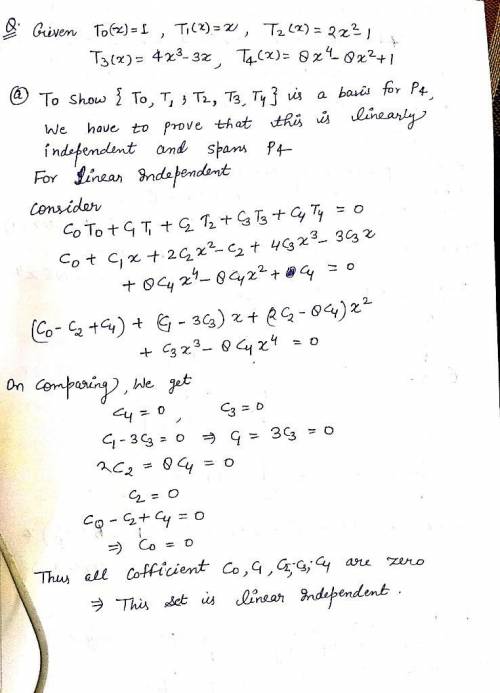 Q. Given T0(x)=1, T1(x)=x, T2(x)=2x²-1
T3(x)=4x³-3x, T4(x)=8x⁴-8x²+1
(a) To show {T0, T1, T2, T3, T4} is a basis for P4,
We have to prove that this is linearly
independent and spans P4
For Linear Independent
Consider
C0T0+C1T1+C2T2+C3T3+C4T4=0
C0+C1x+2C2x²-C2+4C3x³-3C3x
+8C4x⁴-8C4x²+C4=0
(C0-C2+C4)+(C1-3C3)x+(2C2-8C4)x²
+C3x³-8C4x⁴=0
On Comparing, We get
C4=0, C3=0
C1-3C3=0 ⇒ C1=3C3=0
2C2=8C4=0
C2=0
C0-C2+C4=0
⇒ C0=0
Thus all Cofficient C0, C1, C2, C3, C4 are zero
⇒ This Set is linear Independent.